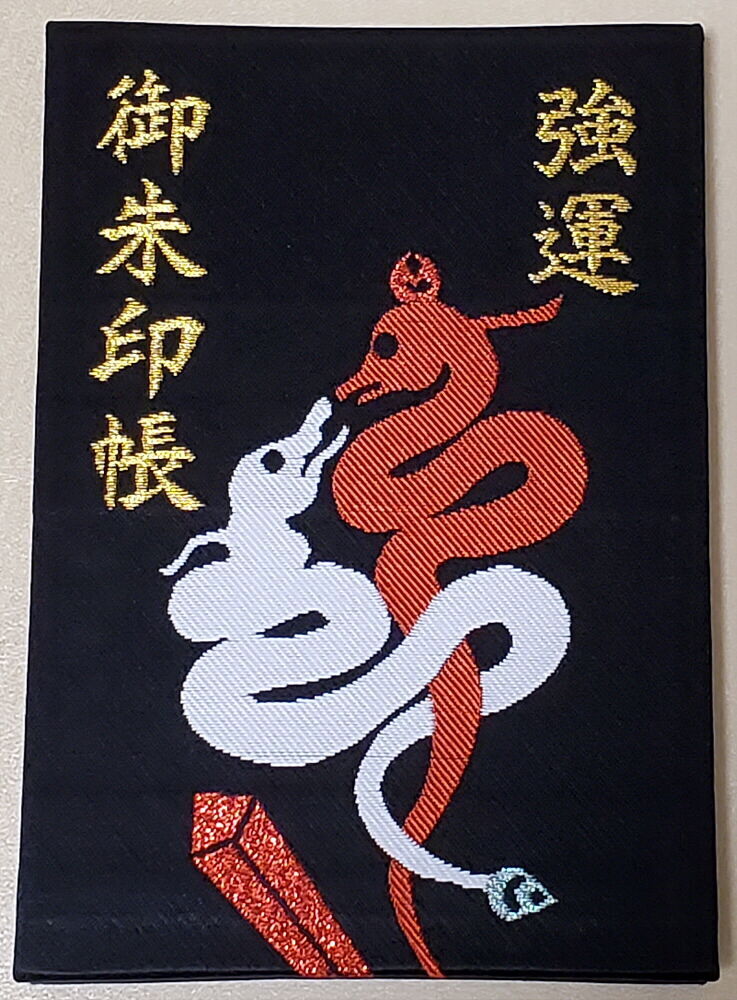 強運
御朱印帳